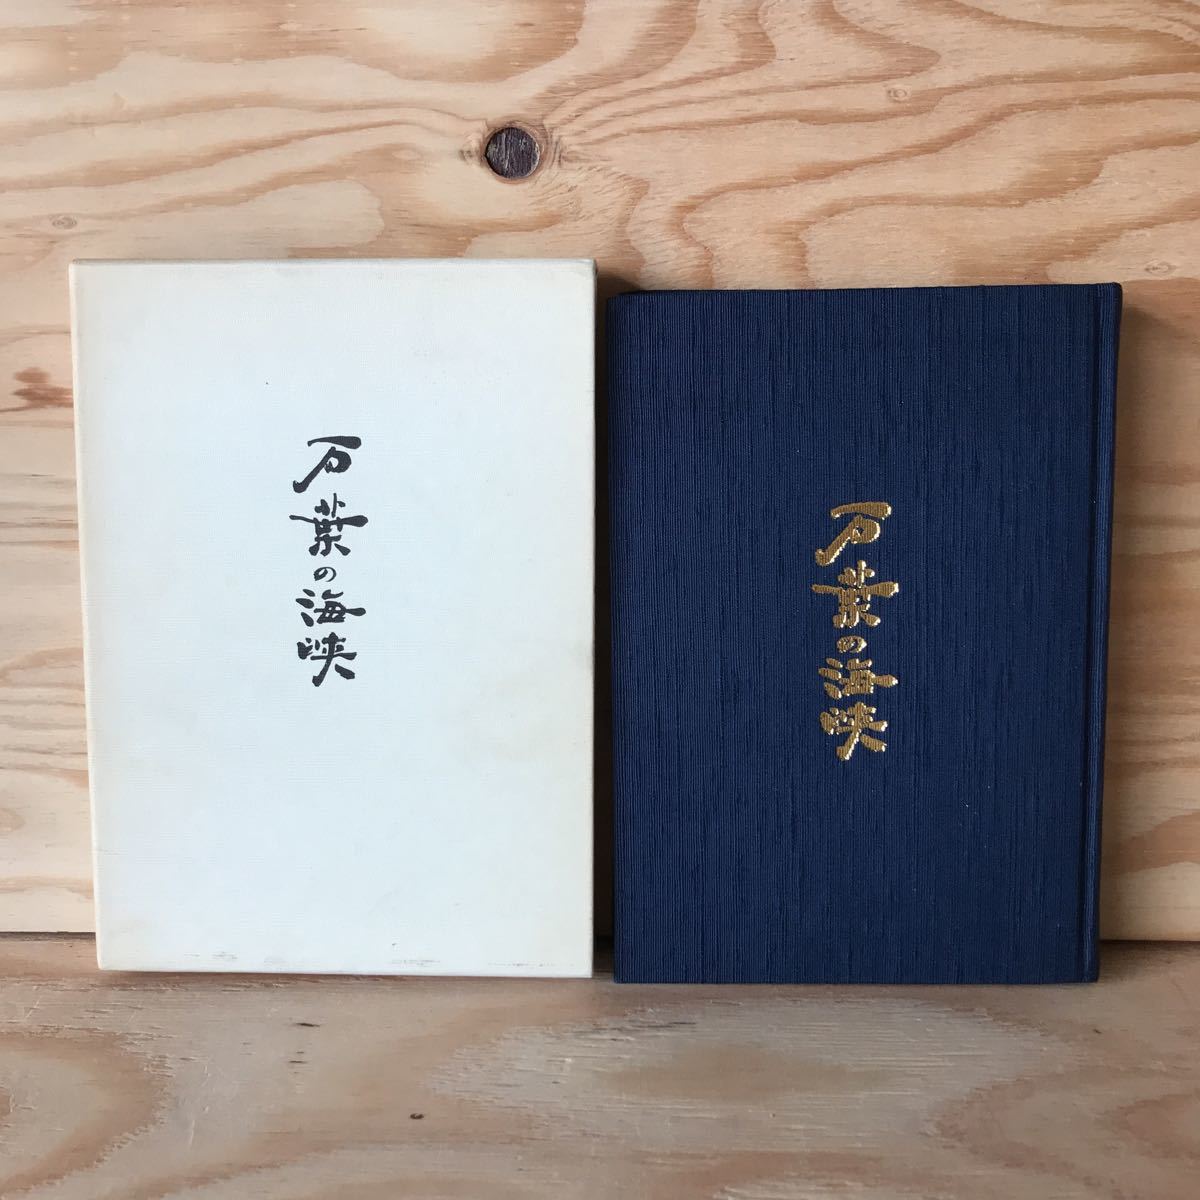 万葉の海峡
万葉の海峡